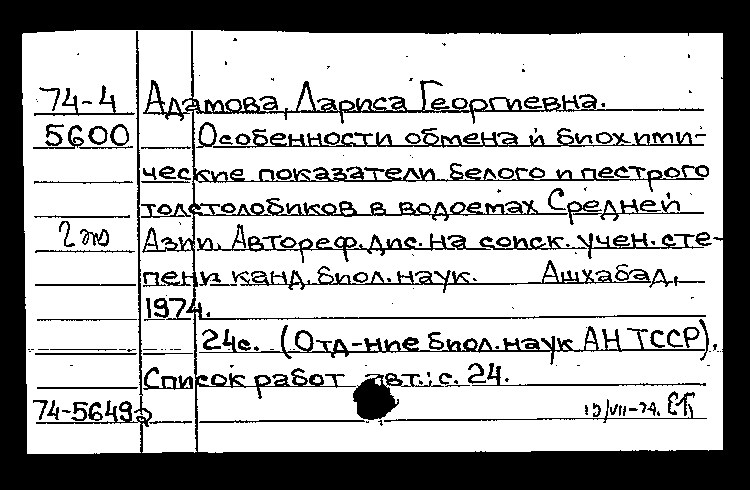 74-4 Адамова, Лариса Георгиевна.
5600 Особенности обмена и биохими-
ческие показатели белого и пестрого
толстолобиков в водоемах Средней
2 эю Азии. Автореф. дис. на соиск. учен. сте-
пени канд. биол. наук. Ашхабад,
1974.
24с. (Отд-ние биол. наук АН ТССР).
Список работ авт.: с. 24.
74-5649